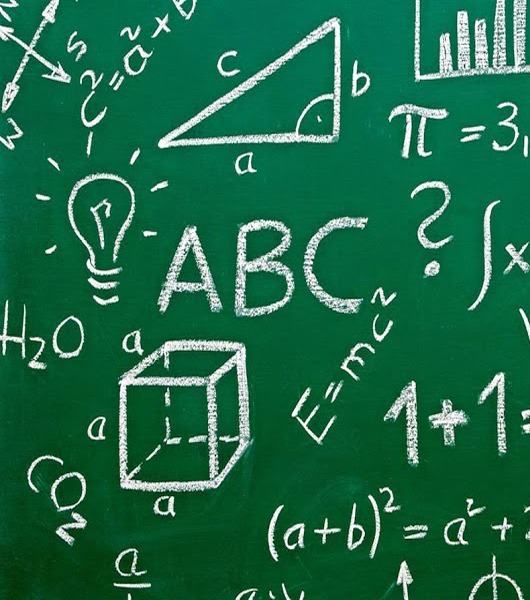 S
c² = a² + b
c
b
a
π = 3,
ABC
?
∫x
H₂O
a
a
a
E = mc²
1+1=
CO₂
(a+b)² = a² + 2
a